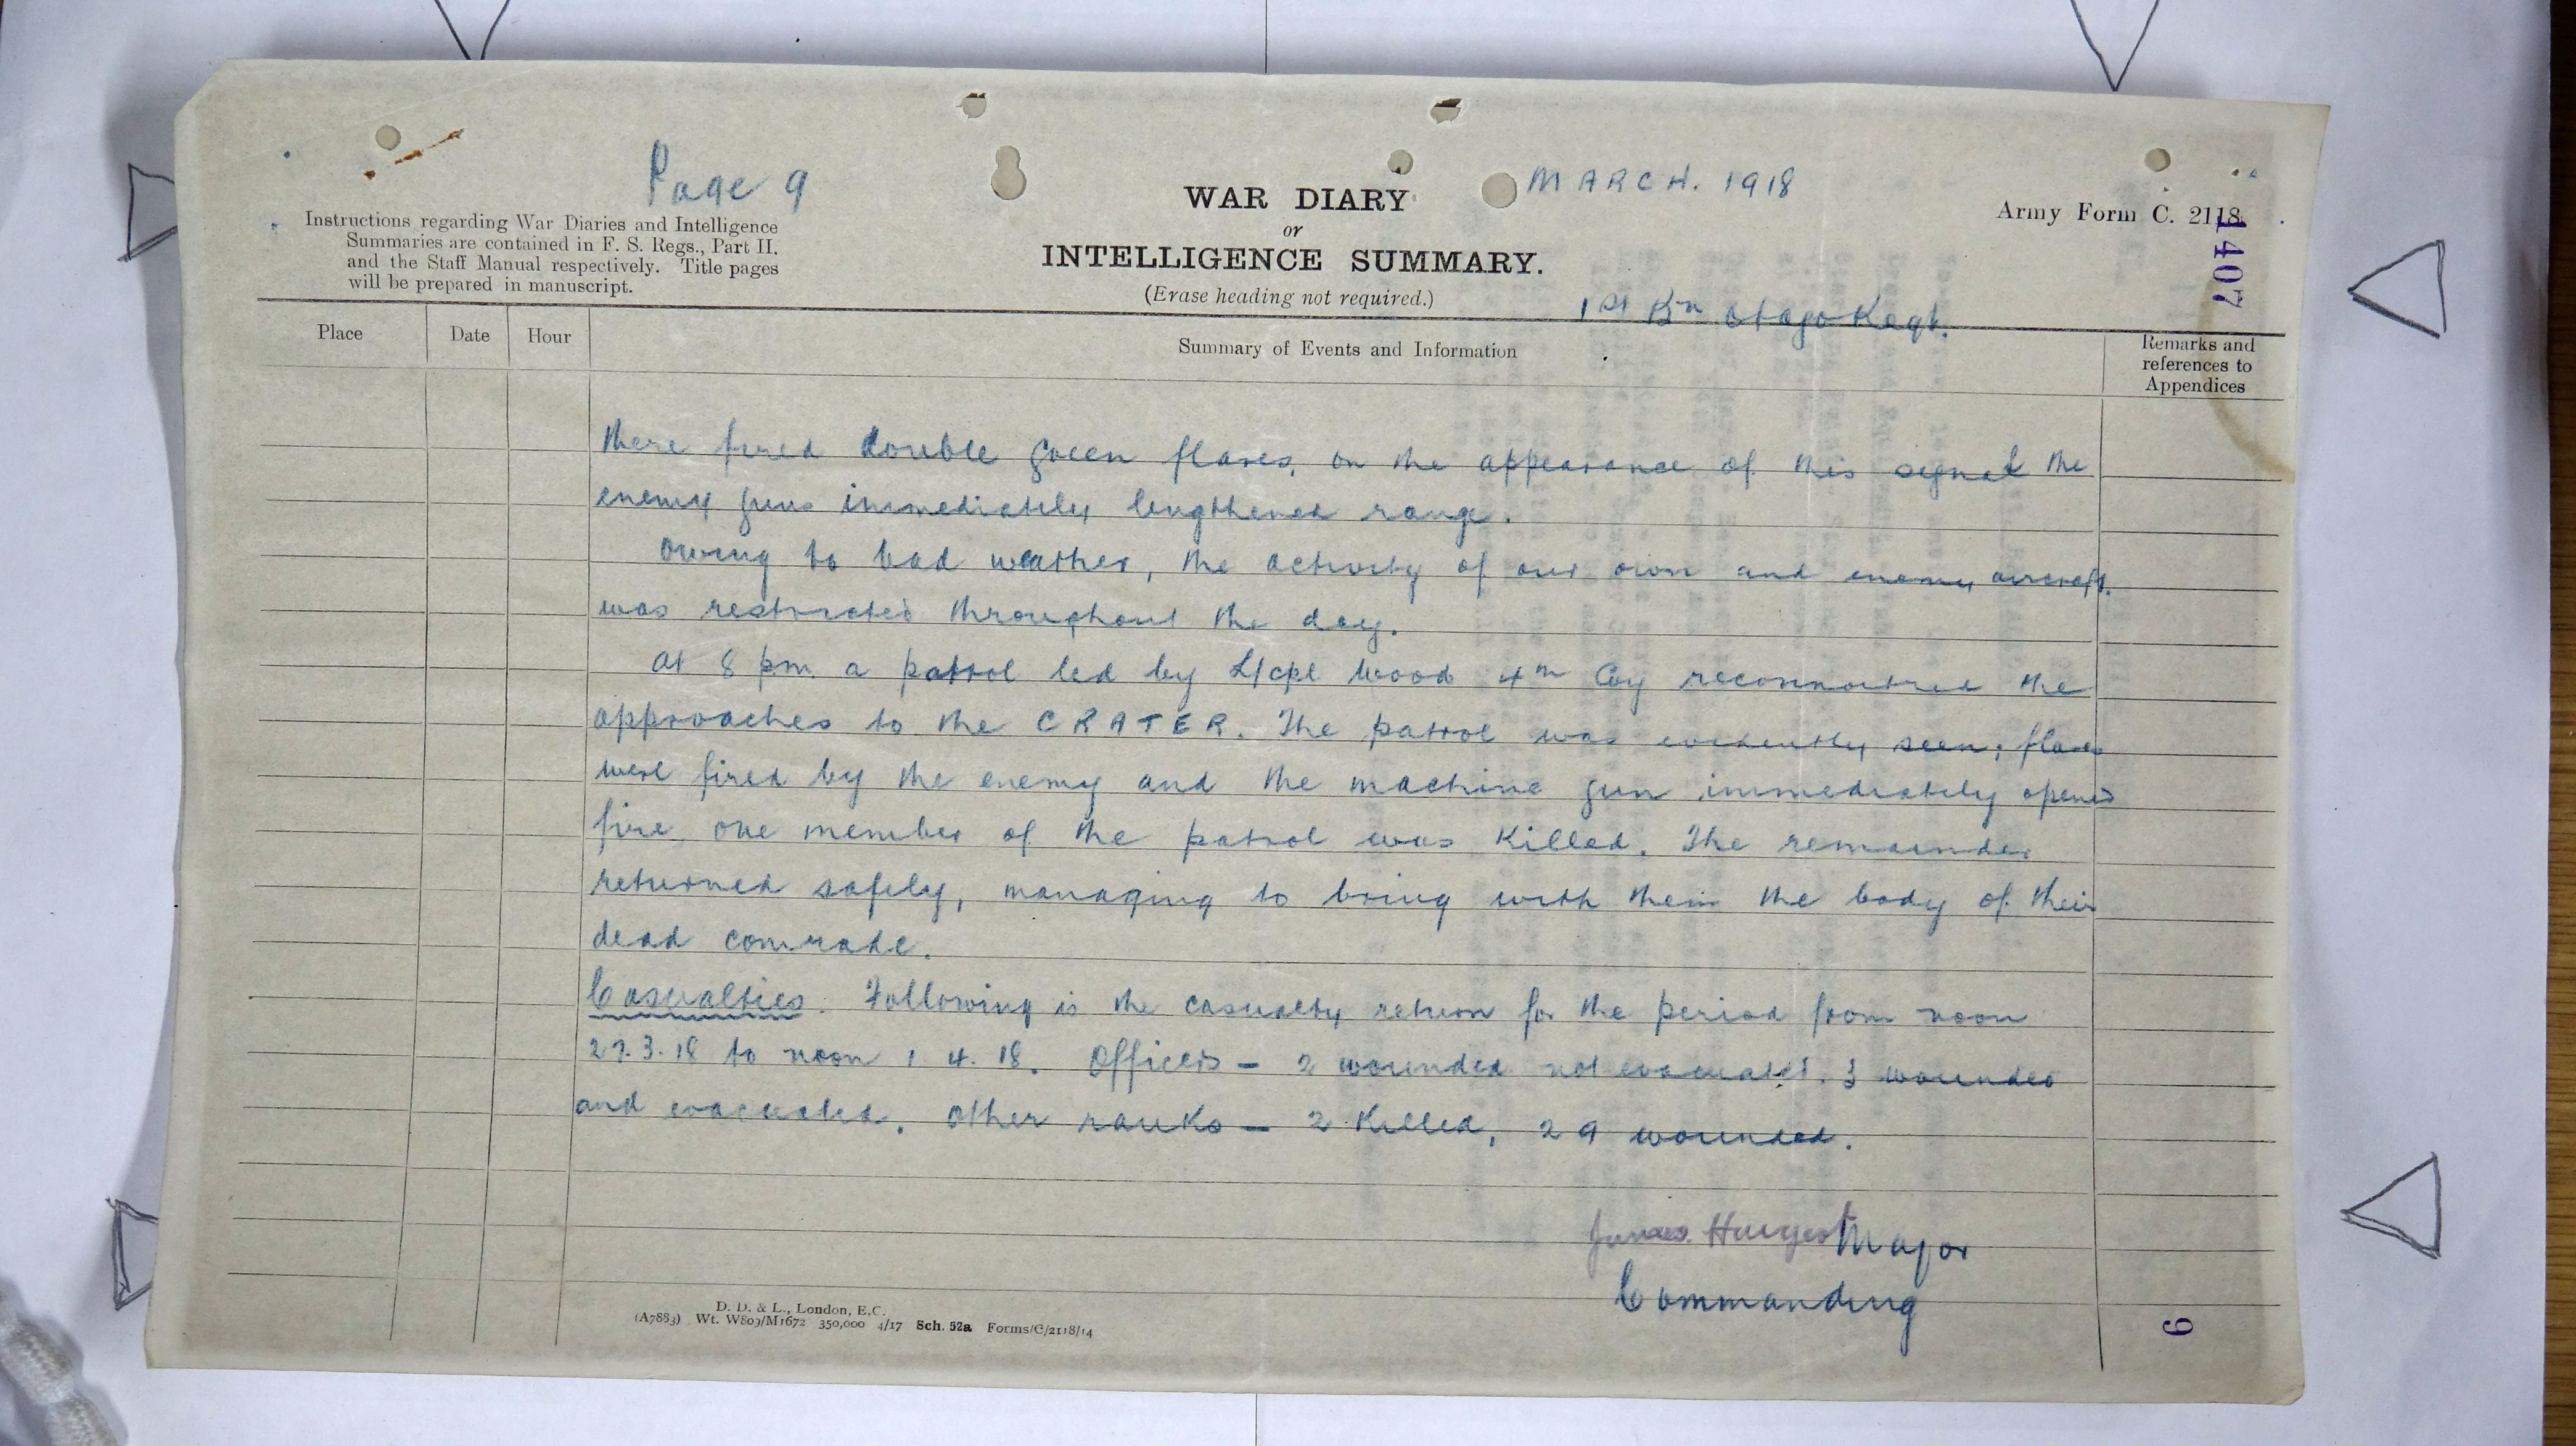 Page 9
MARCH. 1918
Army Form C. 2118.
1407
Instructions regarding War Diaries and Intelligence
Summaries are contained in F. S. Regs., Part II.
and the Staff Manual respectively. Title pages
will be prepared in manuscript.
WAR DIARY
or
INTELLIGENCE SUMMARY.
(Erase heading not required.)
1st Bn Otago Regt.
Place Date Hour Summary of Events and Information Remarks and
references to
Appendices
there fired double green flares, on the appearance of this signal the
enemy guns immediately lengthened range.
Owing to bad weather, the activity of our own and enemy aircraft.
was restricted throughout the day.
At 8 p.m. a patrol led by L/cpl Wood 4th Coy reconnoitred the
approaches to the CRATER. The patrol was evidently seen; flares
were fired by the enemy and the machine gun immediately opened
fire one member of the patrol was killed. The remainder
returned safely, managing to bring with them the body of their
dead comrade.
Casualties. Following is the casualty return for the period from noon
27.3.18 to noon 1.4.18. Officers - 2 wounded not evacuated. 3 wounded
and evacuated. Other ranks - 2 killed, 29 wounded.
James Hargest Major
Commanding
D. D. & L., London, E.C.
(A7883) Wt. W809/M1672 350,000 4/17 Sch. 52a Forms/C/2118/14
9